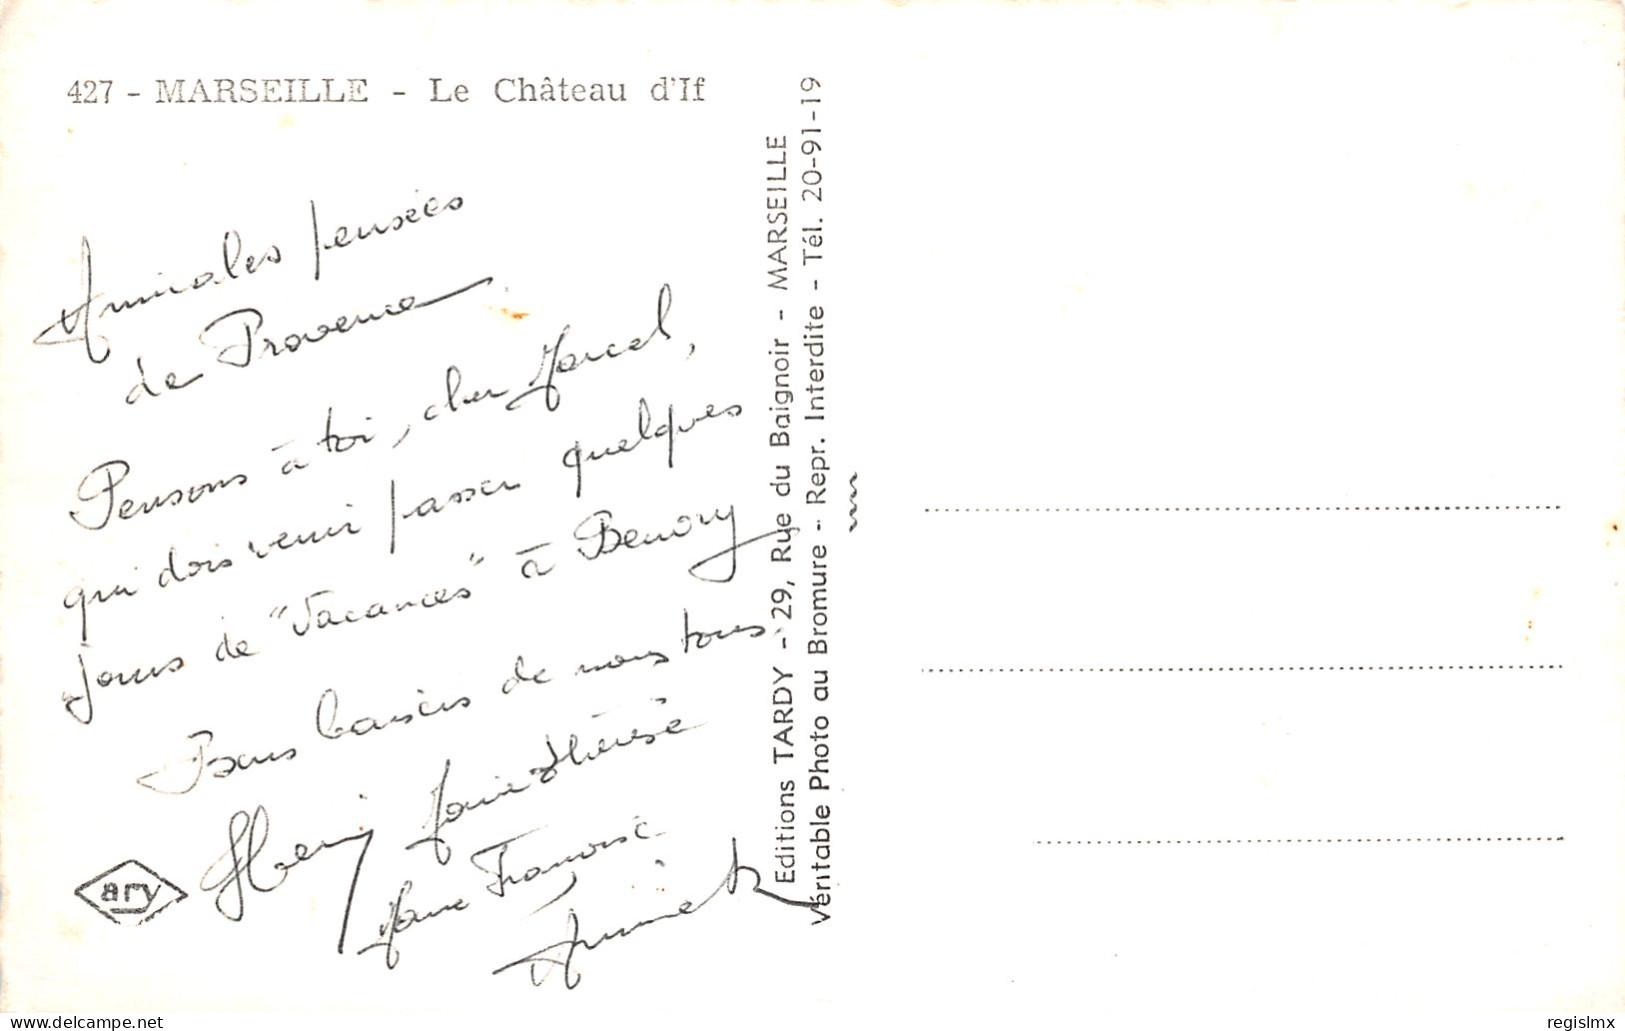 427 - MARSEILLE - Le Château d'If
Amicales pensées
de Provence.
Pensons à toi, cher Marcel,
qui dois venir passer quelques
jours de "Vacances" à Benory
Bons baisers de nous tous.
Henri Marie Thérèse
Marie Françoise
Annick
ary
Editions TARDY - 29, Rue du Baignoir - MARSEILLE
Véritable Photo au Bromure - Repr. Interdite - Tél. 20-91-19
delcampe.net
regislmx